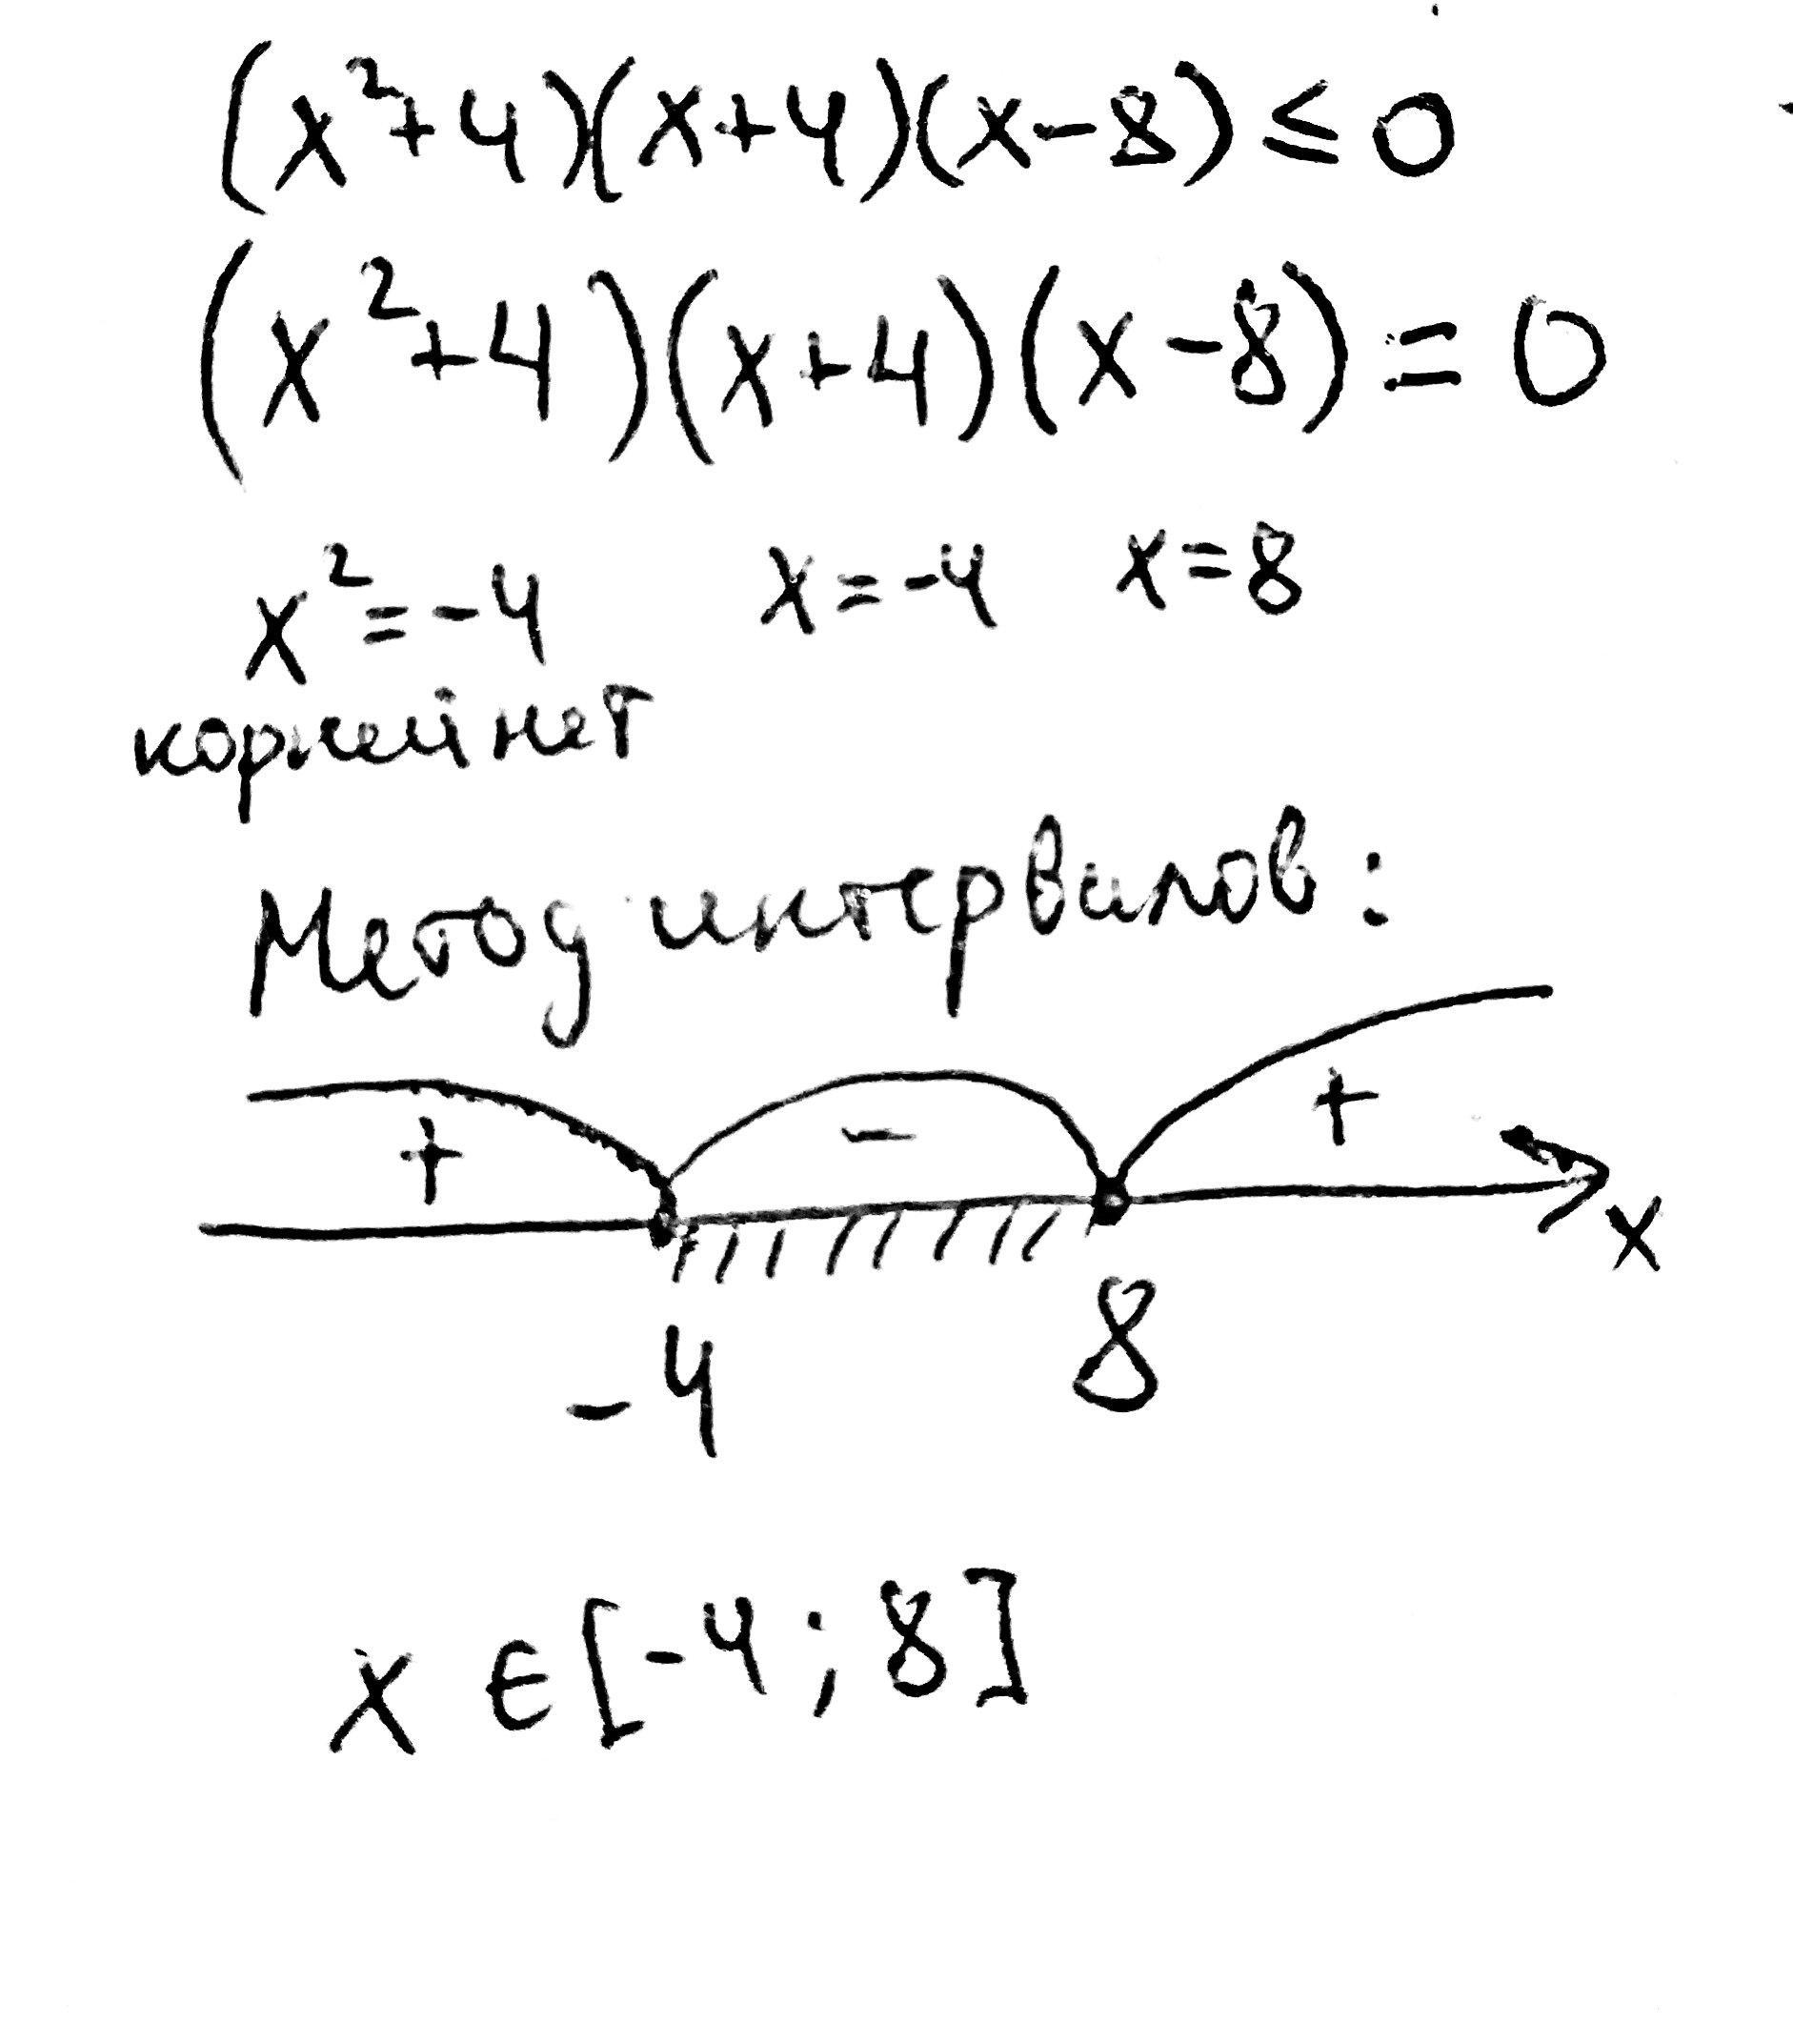 (x²+4)(x+4)(x-8) ≤ 0
(x²+4)(x+4)(x-8) = 0
x² = -4 x = -4 x = 8
корней нет
Метод интервалов:
+ - +
x
-4 8
x ∈ [-4; 8]